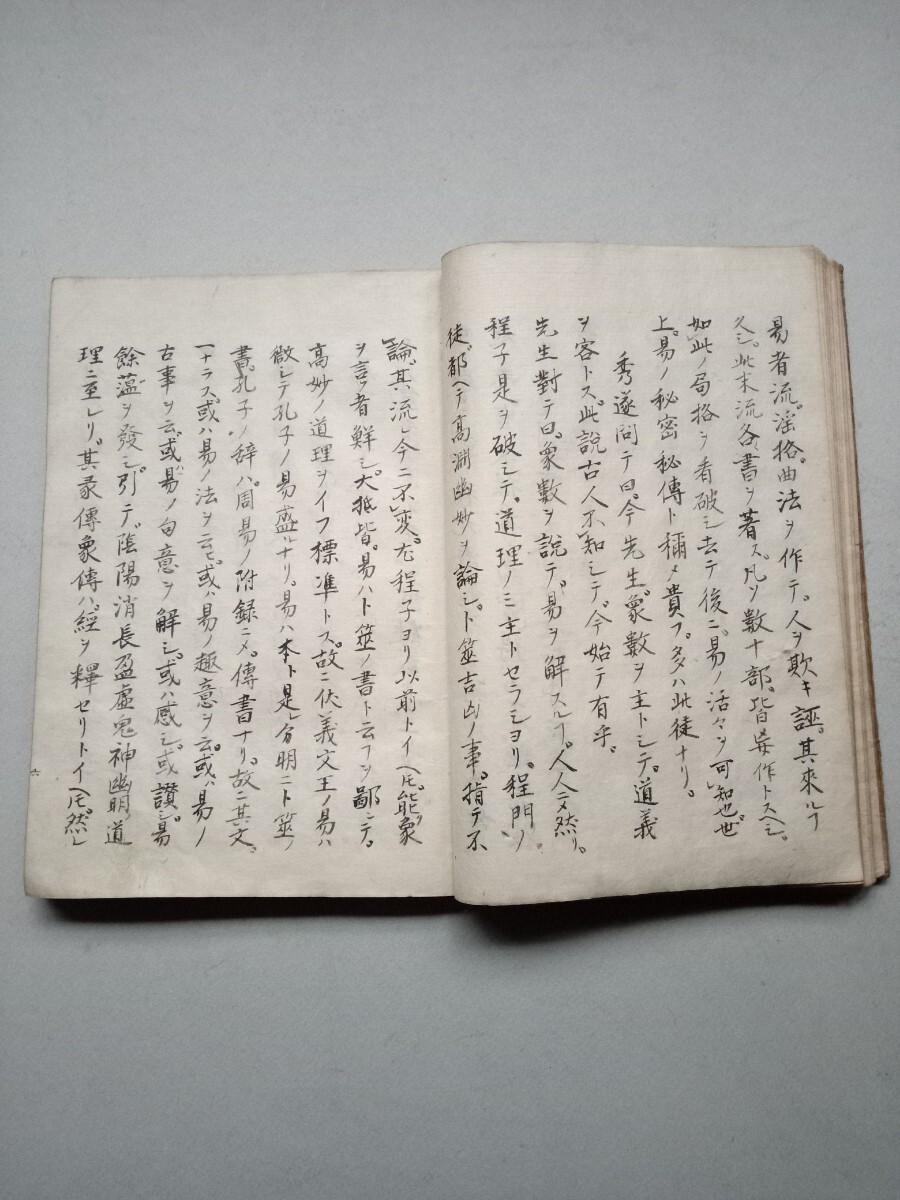 易者流。淫格。曲法ヲ作テ。人ヲ欺キ誣。其來ルヿ
久シ。此末流各書ヲ著ス。凡ソ數十部。皆 作トスヘシ。
如此ノ局格ヲ看破シ去テ後ニ。易ノ活々ヲ可知也。世
上。易ノ秘密秘傳ト稱メ貴フ。多クハ此徒ナリ。
秀遂問テ曰。今先生。象數ヲ主トシテ。道義
ヲ客トス。此説古人不知シテ。今始テ有乎。
先生對テ曰。象數ヲ説テ。易ヲ解スルヿ。人人ニメ然リ。
程子是ヲ破シテ。道理ノミ主トセラシヨリ。程門ノ
徒。都ヘテ高淵幽妙ヲ論シ。卜筮吉凶ノ事。指テ不
論。其流レ今ニ不変。尤程子ヨリ以前トイヘ𪜈。能象
ヲ言フ者鮮シ。大抵皆。易ハ卜筮ノ書ト云フヲ鄙シテ。
高妙ノ道理ヲイフ標準トス。故ニ伏義文王ノ易ハ
微シテ孔子ノ易盛ルナリ。易ハ本ト是レ分明ニ卜筮ノ
書。孔子ノ辞ハ。周易ノ附録ニメ。傳書ナリ。故ニ其文。
一ナラス。或ハ易ノ法ヲ云ヒ。或ハ易ノ趣意ヲ云。或ハ易ノ
古事ヲ云。或ハ易ノ句意ヲ解シ。或ハ感シ。或讃シ。易
餘蘊ヲ發シ。引テ。陰陽消長盈虚鬼神幽明。道
理ニ至レリ。其彖傳象傳ハ。經ヲ釋セリトイヘ𪜈。然レ
六